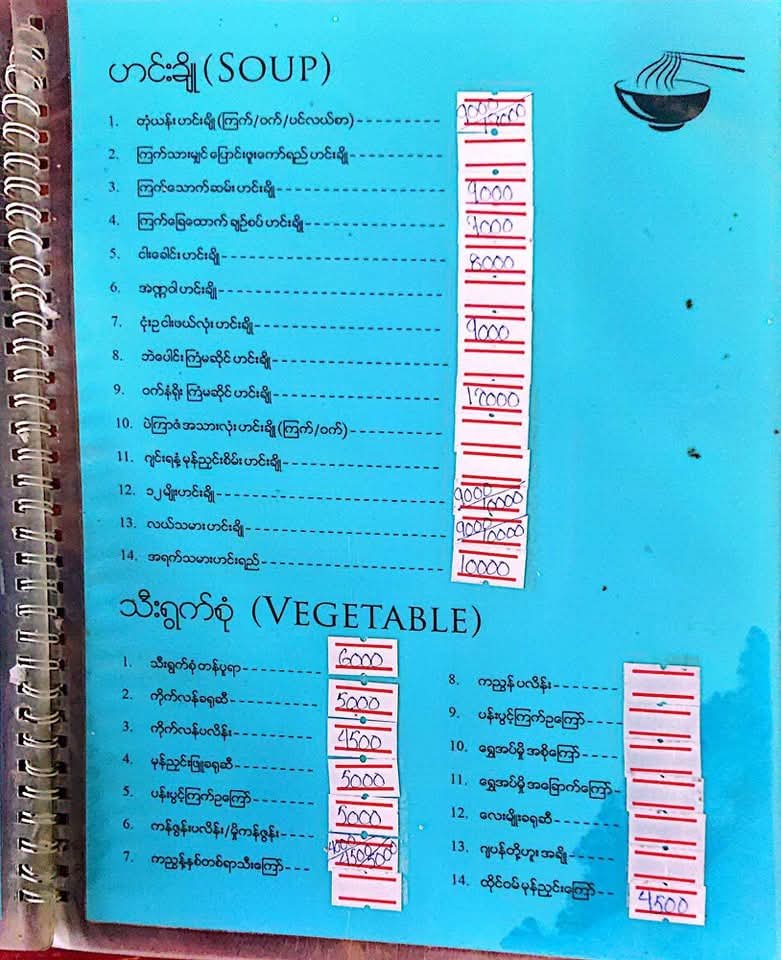 ဟင်းချို (SOUP)
1. တုံယန်းဟင်းချို (ကြက်/ဝက်/ပင်လယ်စာ) 9000/12000
2. ကြက်သားမျှင် ပြောင်းဖူးကော်ရည် ဟင်းချို
3. ကြက်သောက်ဆမ်း ဟင်းချို 9000
4. ကြက်ခြေထောက် ချဉ်စပ် ဟင်းချို 9000
5. ငါးခေါင်း ဟင်းချို 8000
6. အဏ္ဏဝါ ဟင်းချို
7. ငုံးဥ ငါးဖယ်လုံး ဟင်းချို 9000
8. ဘဲပေါင်း ကြံမဆိုင် ဟင်းချို
9. ဝက်နံရိုး ကြံမဆိုင် ဟင်းချို 12000
10. ပဲကြာဇံ အသားလုံး ဟင်းချို (ကြက်/ဝက်)
11. ဂျင်းရနံ့ မုန်ညှင်းစိမ်း ဟင်းချို
12. ၁၂မျိုးဟင်းချို 9000/10000
13. လယ်သမား ဟင်းချို 9000/10000
14. အရက်သမားဟင်းရည် 10000
သီးရွက်စုံ (VEGETABLE)
1. သီးရွက်စုံ တန်ပူရာ 6000
2. ကိုက်လန်ခရုဆီ 5000
3. ကိုက်လန်ပလိန်း 4500
4. မုန်ညှင်းဖြူခရုဆီ 5000
5. ပန်းပွင့်ကြက်ဥကြော် 5000
6. ကန်ဇွန်းပလိန်း/မှိုကန်ဇွန်း
7. ကညွတ်နှစ်တစ်ရာသီးကြော်
8. ကညွန် ပလိန်း
9. ပန်းပွင့်ကြက်ဥကြော်
10. ရွှေအပ်မှို အစိုကြော်
11. ရွှေအပ်မှို အခြောက်ကြော်
12. လေးမျိုးခရုဆီ
13. ဂျပန်တို့ဟူး အချို
14. ထိုင်ဝမ် မုန်ညှင်းကြော် 4500